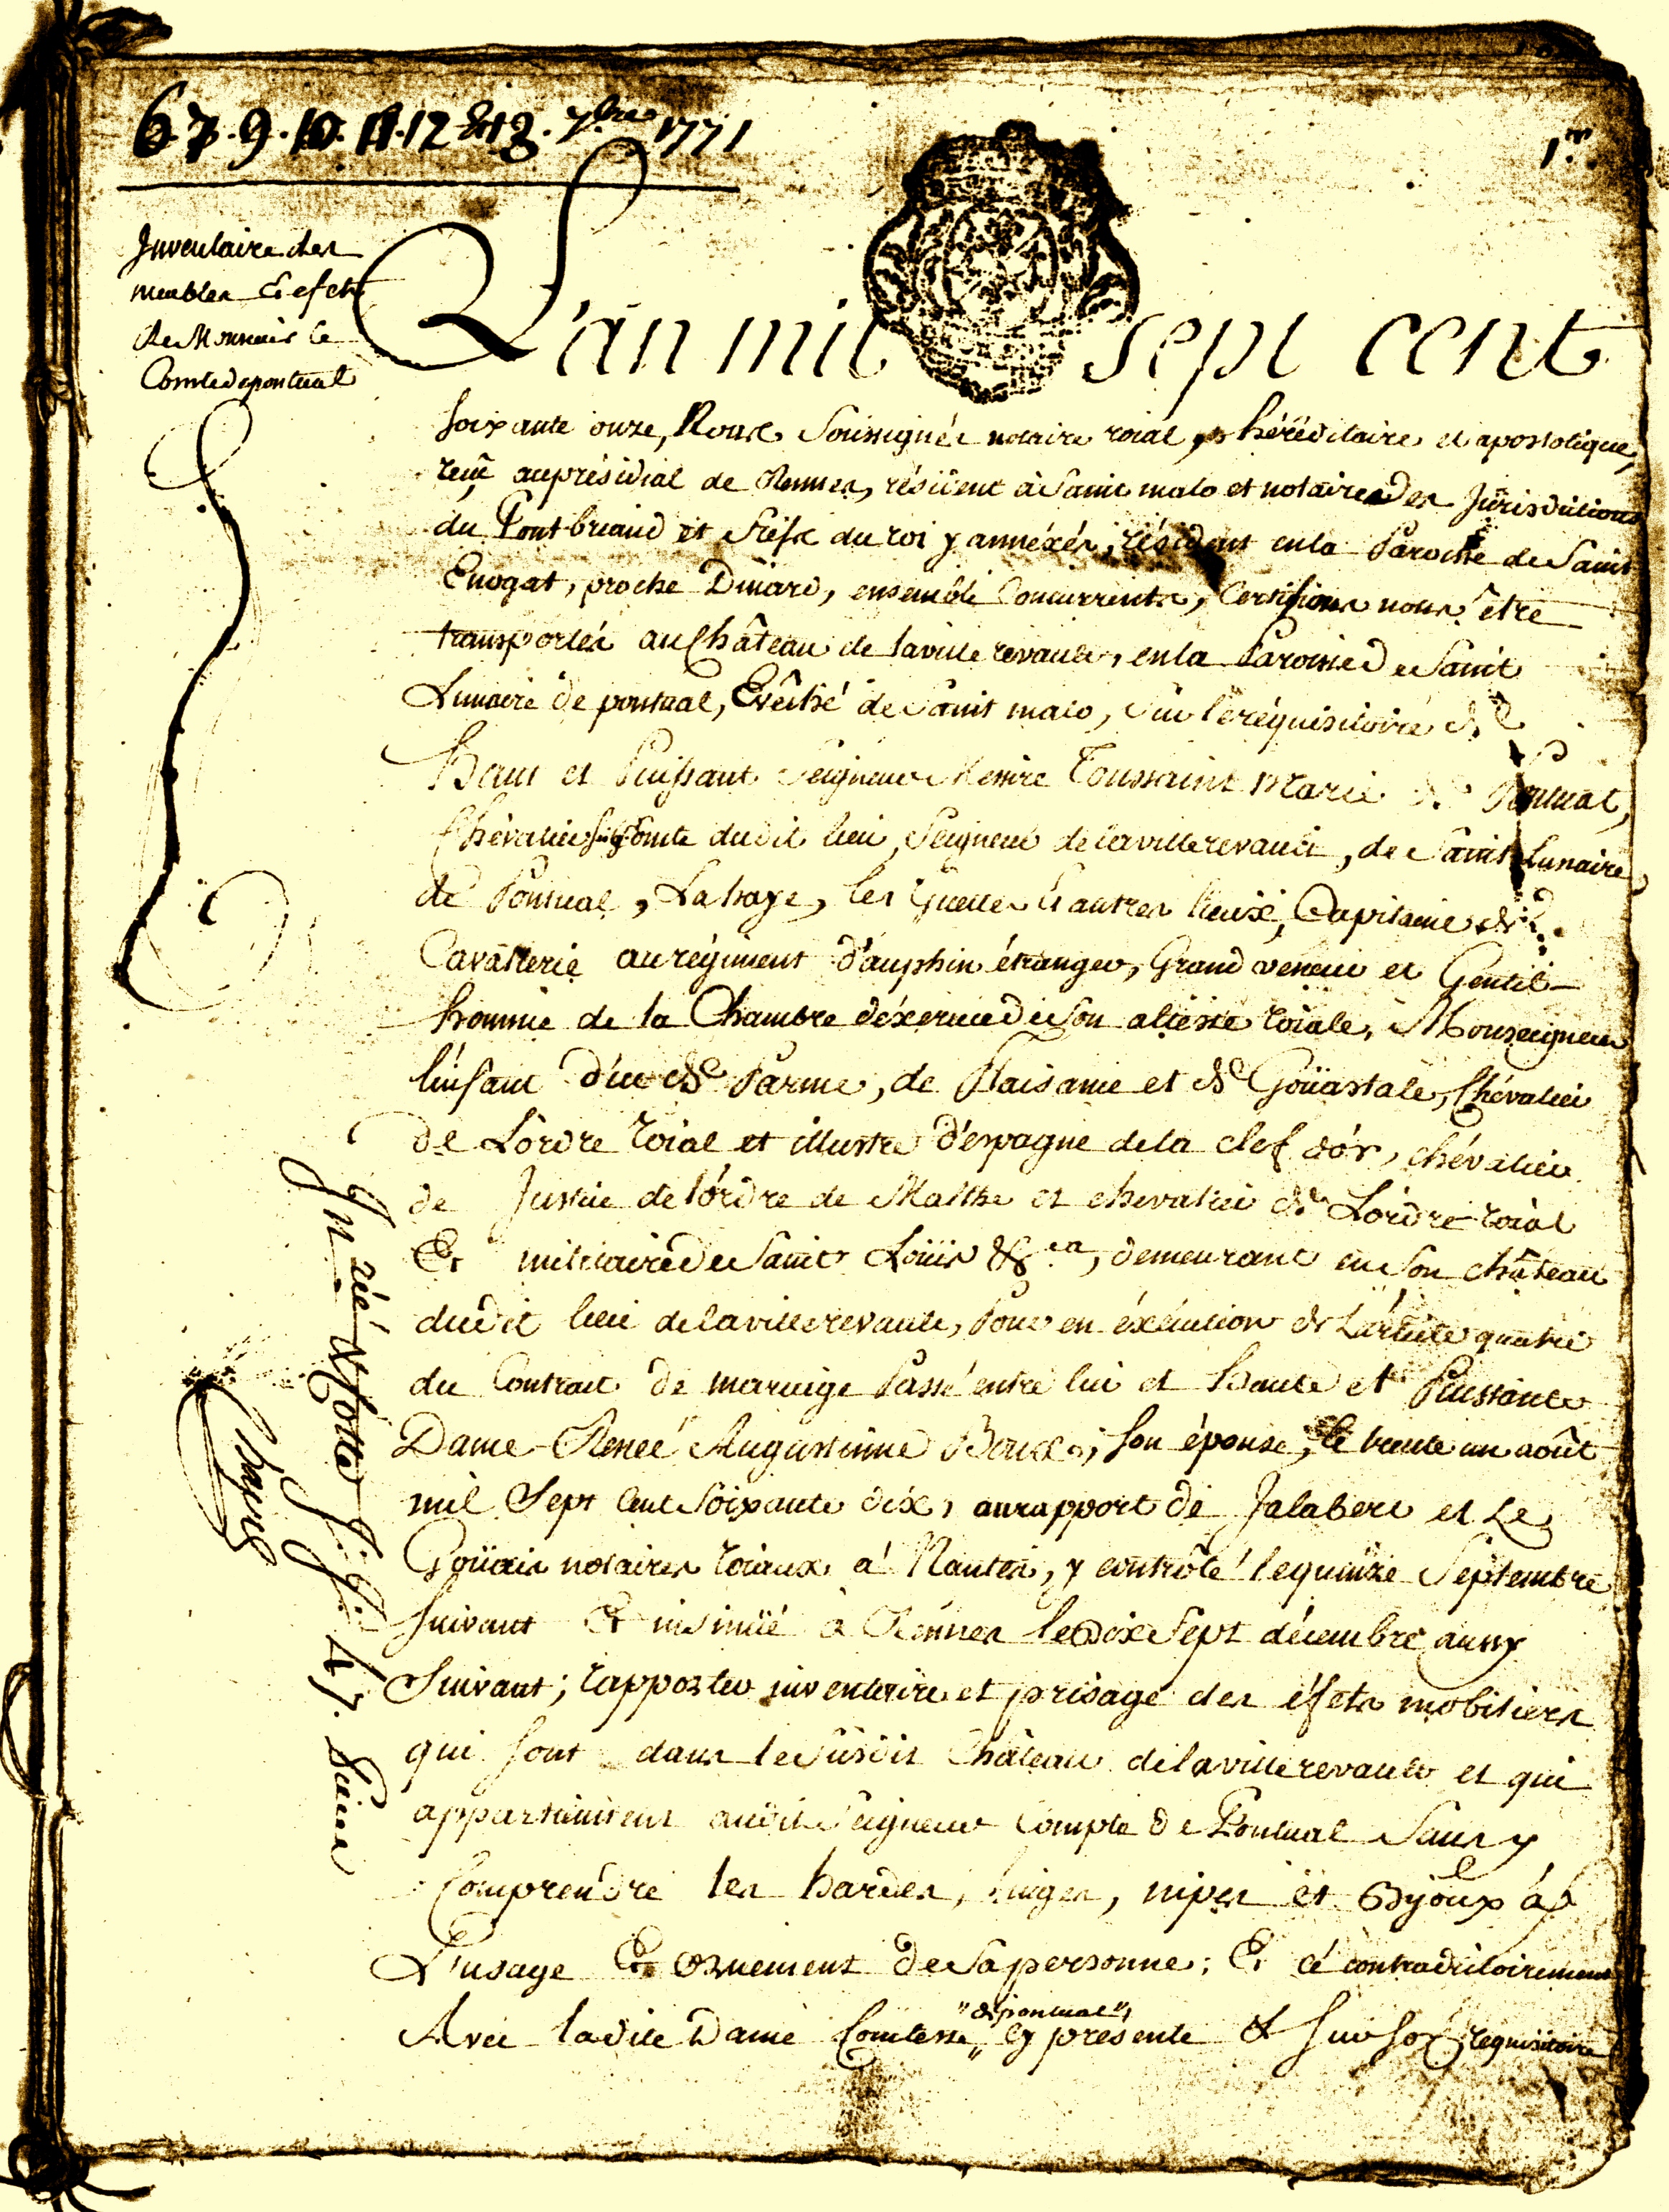 6. 7. 9. 10. 11. 12 & 13. 7bre 1771
1er.
Inventaire des
meubles & efets
de Monsieur le
Comte de pontual
L'an mil sept cent
soixante onze, Nous Soussignés notaire roial, héréditaire et apostolique,
reçu au présidial de Rennes, résident à Saint malo et notaire des Jurisdictions
du Pontbriand et fiefs du roi y annéxés, résident en la Paroisse de Saint
Enogat, proche Dinard, ensemble Concurrents, Certifions nous être
transportés au Château de laville revault, en la Paroisse de Saint
Lunaire de pontual, Evêché de Saint malo, Sur le réquisitoire de
Haut et Puissant Seigneur Messire Toussaint Marie de Pontual,
Chévalier Comte dudit lieu, Seigneur de lavillerevault, de Saint Lunaire,
de Pontual, La haye, les Guettes & autres lieux, Capitaine de
Cavallerie au régiment d'auphin étranger, Grand veneur et Gentil-
homme de la Chambre d'éxercice de Son altesse roiale, Monseigneur
l'infant d'uc de Parme, de Plaisance et de Goüastale, Chévalier
de L'ordre roial et illustre d'espagne de la clef d'or, chévalier
de Justice de l'ordre de Malthe et chevalier de L'ordre roial
Et militaire de Saint Loüis &ca, demeurant en Son château
dudit lieu de lavillerevault, Pour en éxécution de L'article quatre
du Contrat de mariage Passé entre lui et Haute et Puissante
Dame Renée Augustinne Boux, son épouse, le trente un août
mil Sept Cent Soixante dix, au rapport de Jalabert et Le
Goüais notaires roiaux à Nantes, y contrôlé le quinze Septembre
suivant Et insinüé à Rennes le dix Sept décembre aussy
Suivant; rapporter inventaire et prisage des éfets mobiliers
qui sont dans le Susdit Château de lavillerevault et qui
appartiennent audit Seigneur Compte de Pontual Sans y
Comprendre les hardes, linges, nipes et Bijoux à
L'usage Et ornement de Sa personne; Et ce contradictoirement
Avec ladite Dame Comtesse "de pontual", cy présente & sur son réquisitoire